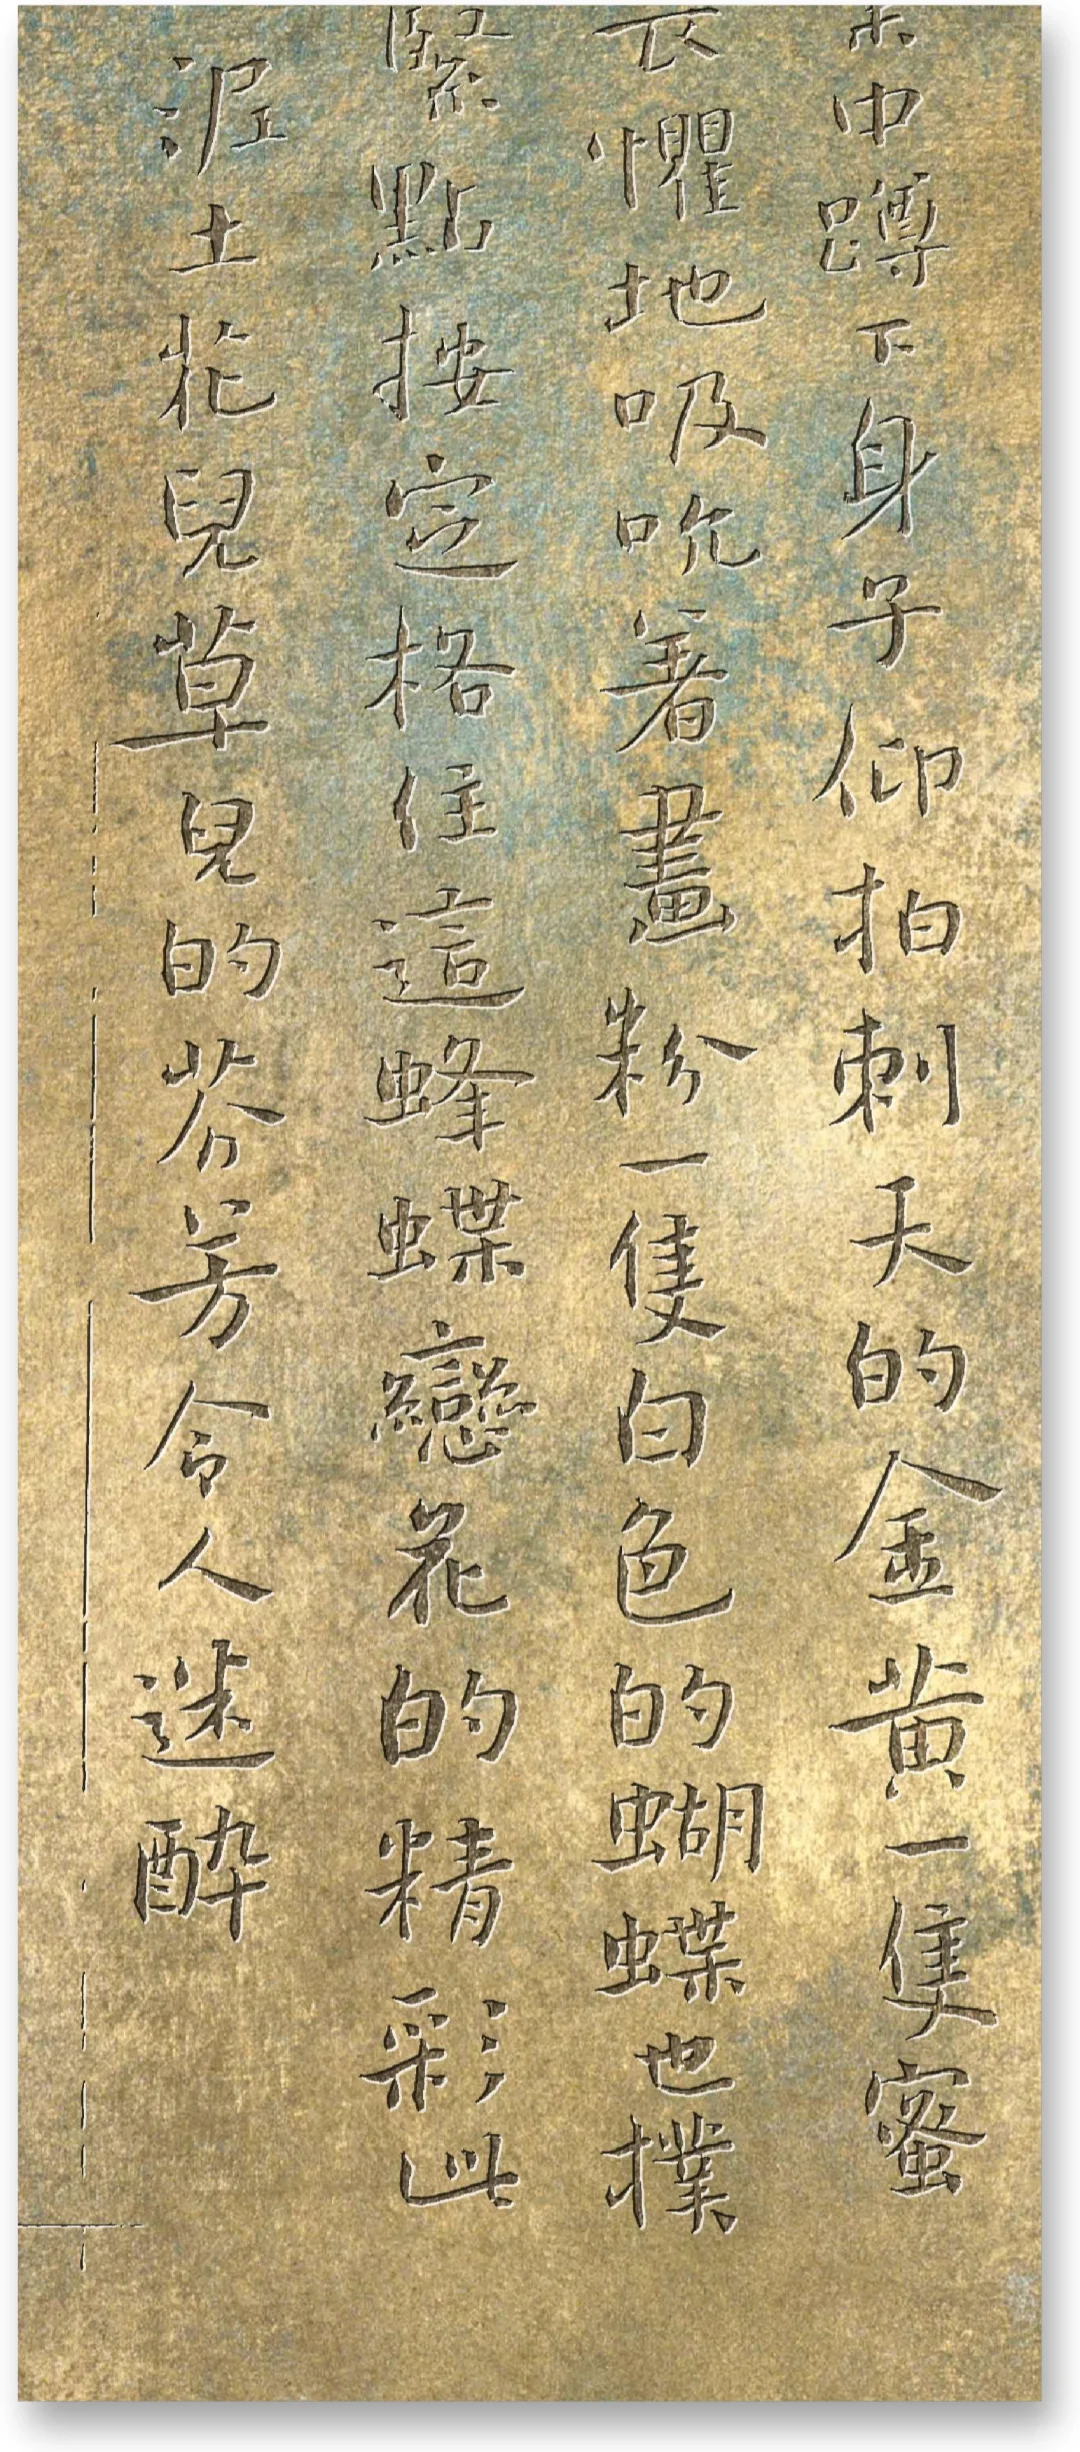 中蹲下身子仰拍刺天的金黃一隻蜜
懼地吸吮著畫粉一隻白色的蝴蝶也撲
緊點按定格住這蜂蝶戀花的精彩此
泥土花兒草兒的芬芳令人迷醉